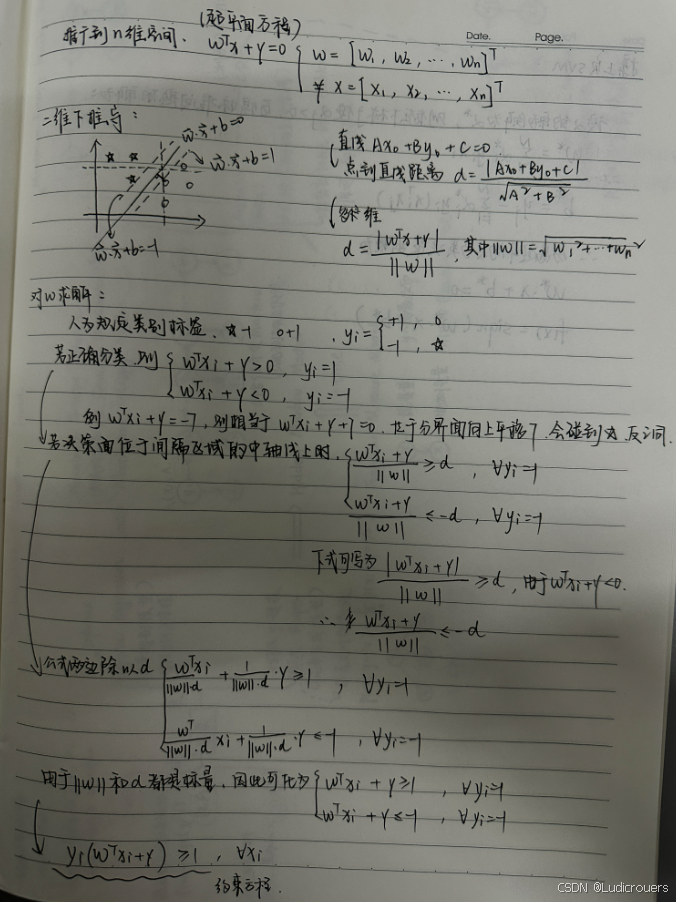 Date. Page.
(超平面方程)
推广到n维空间. wᵀx+γ=0 { w=[w₁, w₂, ⋯, wₙ]ᵀ
x=[x₁, x₂, ⋯, xₙ]
二维下推导:
w·x+b=0
w·x+b=1
w·x+b=-1
直线 Ax₀+By₀+C=0
点到直线距离 d=|Ax₀+By₀+C|/√(A²+B²)
多维
d=|wᵀx+γ|/||w||, 其中||w||=√(w₁²+⋯+wₙ²)
对w求解:
人为规定类别标签. ☆-1 0+1 , yi={+1, 0
-1, ☆
若正确分类,则{wᵀxi+γ>0, yi=1
wᵀxi+γ<0, yi=-1
例 wᵀxi+γ=-7, 则相当于 wᵀxi+γ+7=0. 也于分界面向上平移7, 会碰到☆ 反之同.
若决策面位于间隔区域的中轴线上时, {(wᵀxi+γ)/||w||≥d , ∀yi=1
(wᵀxi+γ)/||w||≤-d, ∀yi=-1
下式可写为 |wᵀxi+γ|/||w||≥d, 由于wᵀxi+γ<0.
∴ (wᵀxi+γ)/||w||≤-d
公式两边除以d {wᵀxi/(||w||·d)+1/(||w||·d)·γ≥1 , ∀yi=1
wᵀ/(||w||·d) xi+1/(||w||·d)·γ≤-1 , ∀yi=-1
由于||w||和d都是标量, 因此可化为{wᵀxi+γ≥1 , ∀yi=1
wᵀxi+γ≤-1 , ∀yi=-1
yi(wᵀxi+γ)≥1, ∀xi
约束方程.
CSDN @Ludicrouers